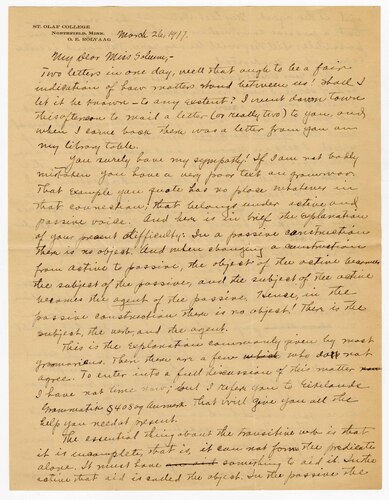 ST. OLAF COLLEGE
NORTHFIELD, MINN.
O. E. RÖLVAAG
March 26, 1917.
My Dear Miss Solum,-
Two letters in one day, well that ought to be a fair
indication of how matters stand between us! Shall I
let it be known - to any extent? I went down town
this afternoon to mail a letter (or really two) to you, and
when I came back there was a letter from you on
my library table.
You surely have my sympathy! If I am not badly
mistaken you have a very poor text on grammar.
That example you quote has no place whatever in
that connection; that belongs under active and
passive voice. And here is in brief the explanation
of your present difficulty: In a passive construction
there is no object. And when changing a construction
from active to passive, the object of the active becomes
the subject of the passive, and the subject of the active
becomes the agent of the passive. Hence, in the
passive construction there is no object! There is the
subject, the verb, and the agent.
This is the explanation commonly given by most
grammarians. Then there are a few who do not
agree. To enter into a full discussion of this matter
I have not time now; but I refer you to Eitrheims
Grammatik § 408 og Anmerk. That will give you all the
help you need at present.
The essential thing about the transitive verb is that
it is incomplete, that is, it can not form the predicate
alone. It must have something to aid it. In the
active that aid is called the object. In the passive the